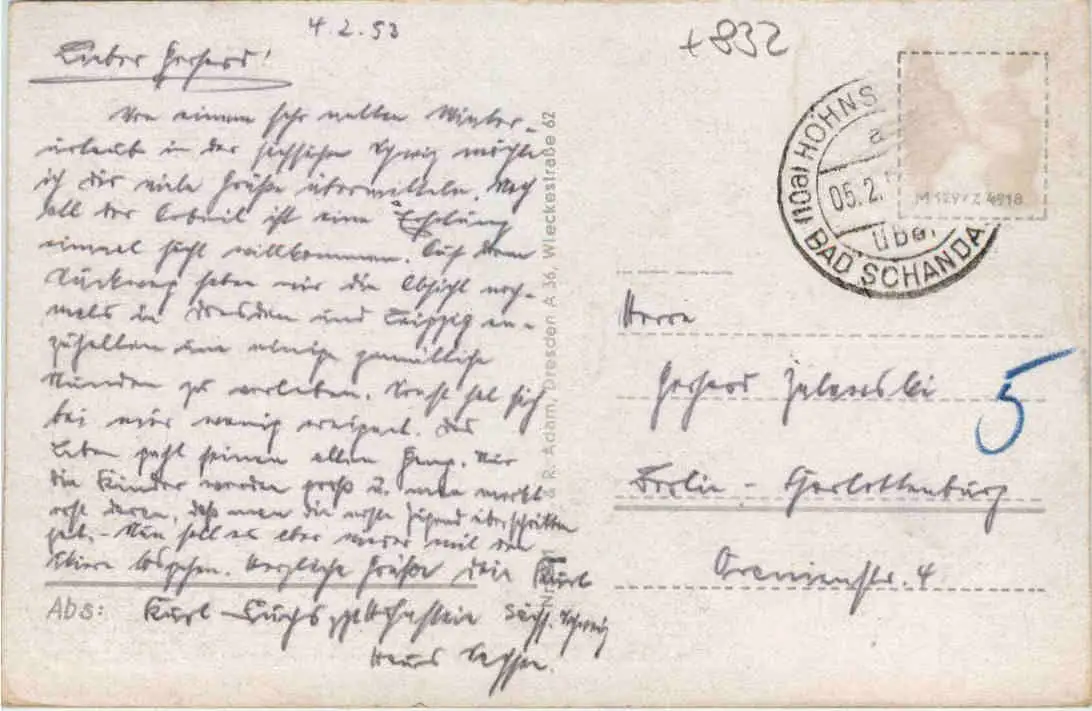 4.2.53
+832
Lieber Gerhard!
Von einem sehr netten Winter-
urlaub in der sächsischen Schweiz möchte
ich dir viele Grüße übermitteln. Nach
all der Arbeit ist eine Erholung
einmal recht willkommen. Auf dem
Rückweg haben wir die Absicht noch-
mals in Dresden und Leipzig an-
zuhalten um einige gemütliche
Stunden zu verleben. Sonst hat sich
bei mir wenig ereignet. Das
Leben geht seinen alten Gang. Nur
die Kinder werden groß u. man merkt
erst daran, daß man die erste Jugend überschritten
hat. - Nun soll es aber wieder mit den
Skiern losgehen. Herzliche Grüße dein Kurt
Abs: Kurt Fuchs zzt. Hohnstein Sächs. Schweiz
Haus
& R. Adam, Dresden A 36, Wieckestraße 62
(10a) HOHNS
a
05.2.
über
BAD SCHANDA
M 129/Z 4918
Herrn
Gerhard Zalewski
5
Berlin - Charlottenburg
Oranienstr. 4